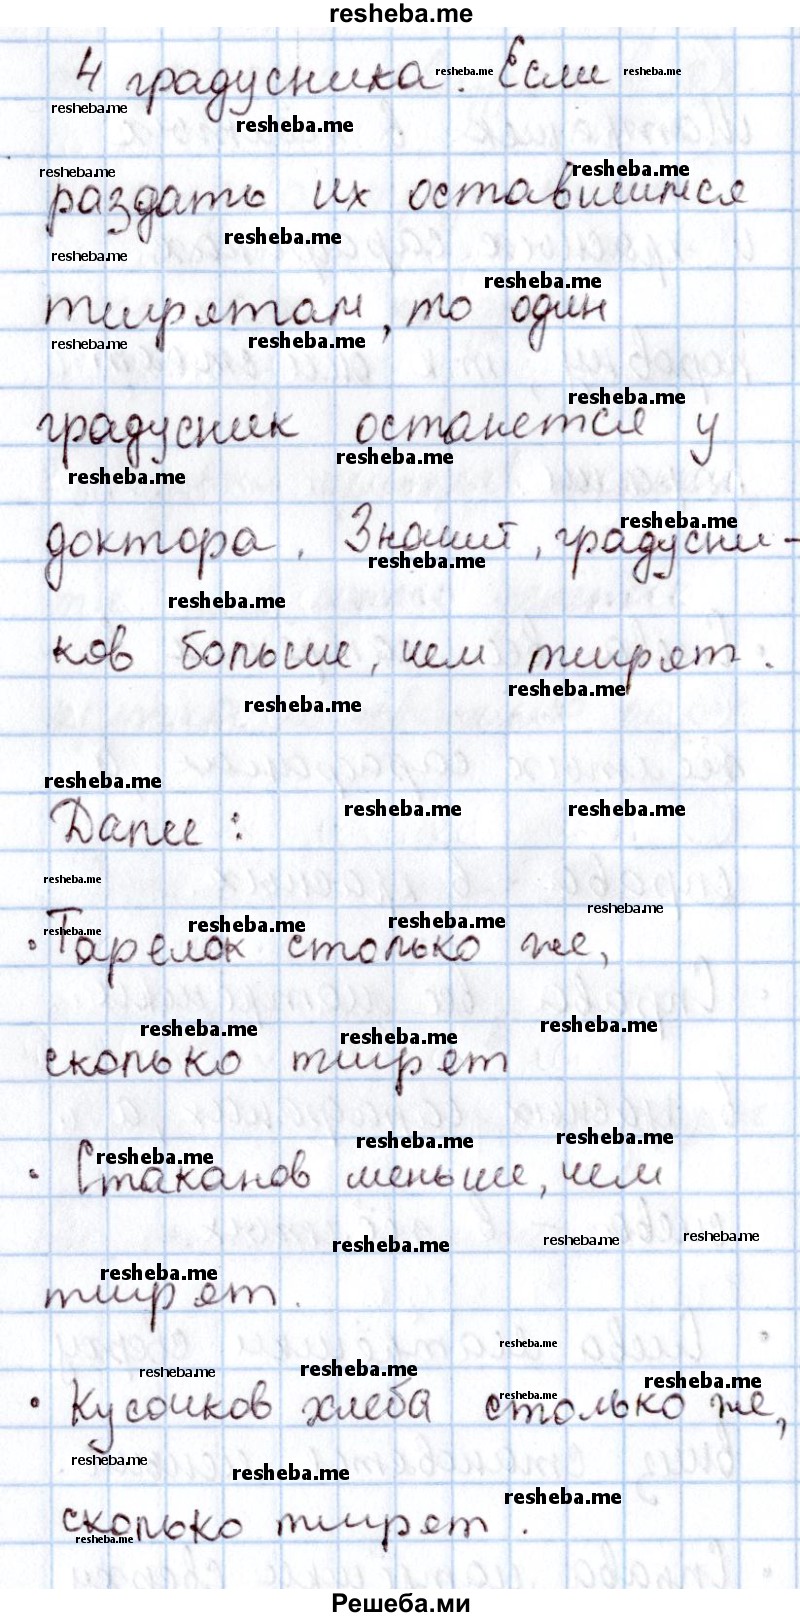 resheba.me
4 градусника. Если
раздать их оставшимся
тигрятам, то один
градусник останется у
доктора. Значит, градусни-
ков больше, чем тигрят.
Далее:
• Тарелок столько же,
сколько тигрят
• Стаканов меньше, чем
тигрят.
• Кусочков хлеба столько же,
сколько тигрят.
Решеба.ми